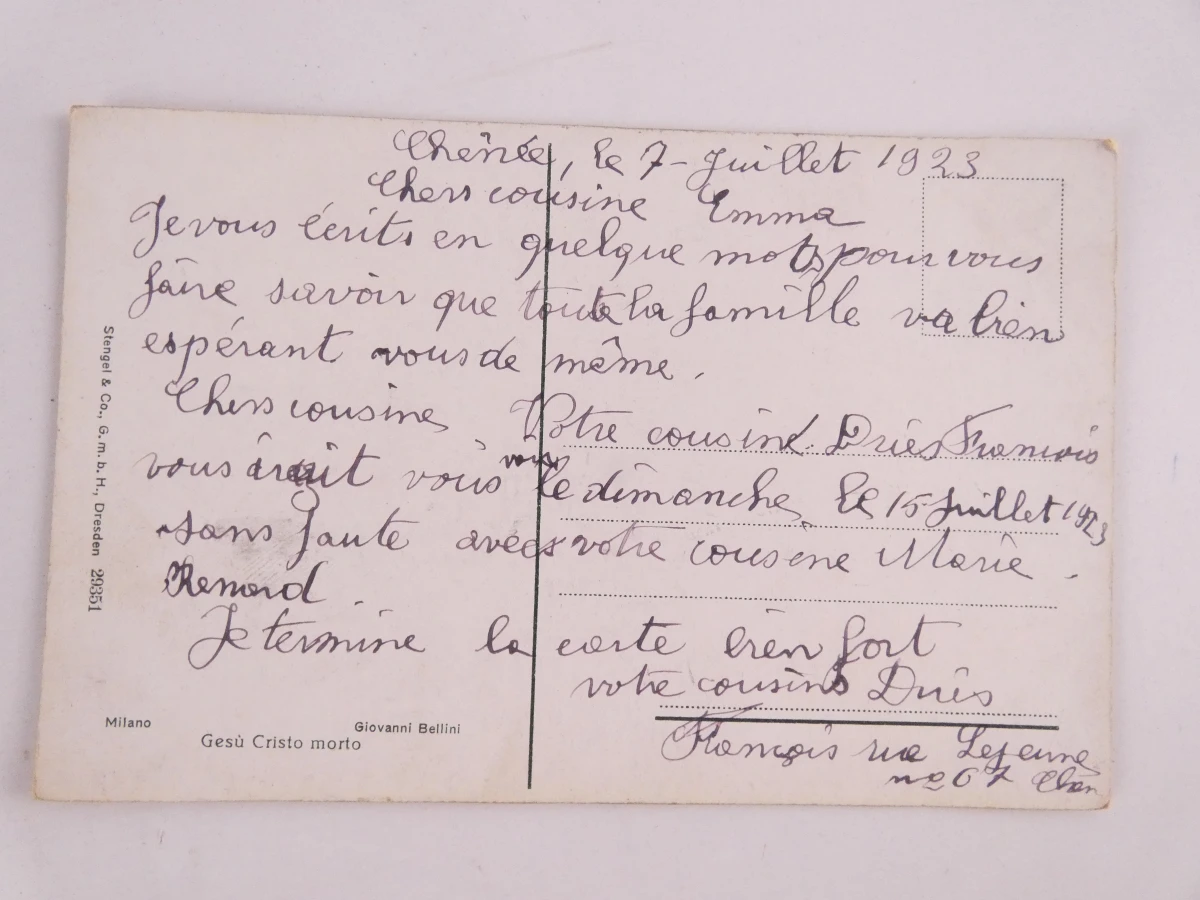 Chênée, le 7-Juillet 1923
Chers cousine Emma
Je vous écrits en quelque mots pour vous
faire savoir que toute la famille va bien
espérant vous de même.
Chers cousine, Votre cousin Driès François
vous irait vous voir le dimanche, le 15 juillet 1923
sans faute avecs votre cousene Marie.
Renard.
Je termine la carte bien fort
votre cousins Driès
François rue Lejeune
no 67 Chên
Stengel & Co., G. m. b. H., Dresden 29351
Milano
Giovanni Bellini
Gesù Cristo morto